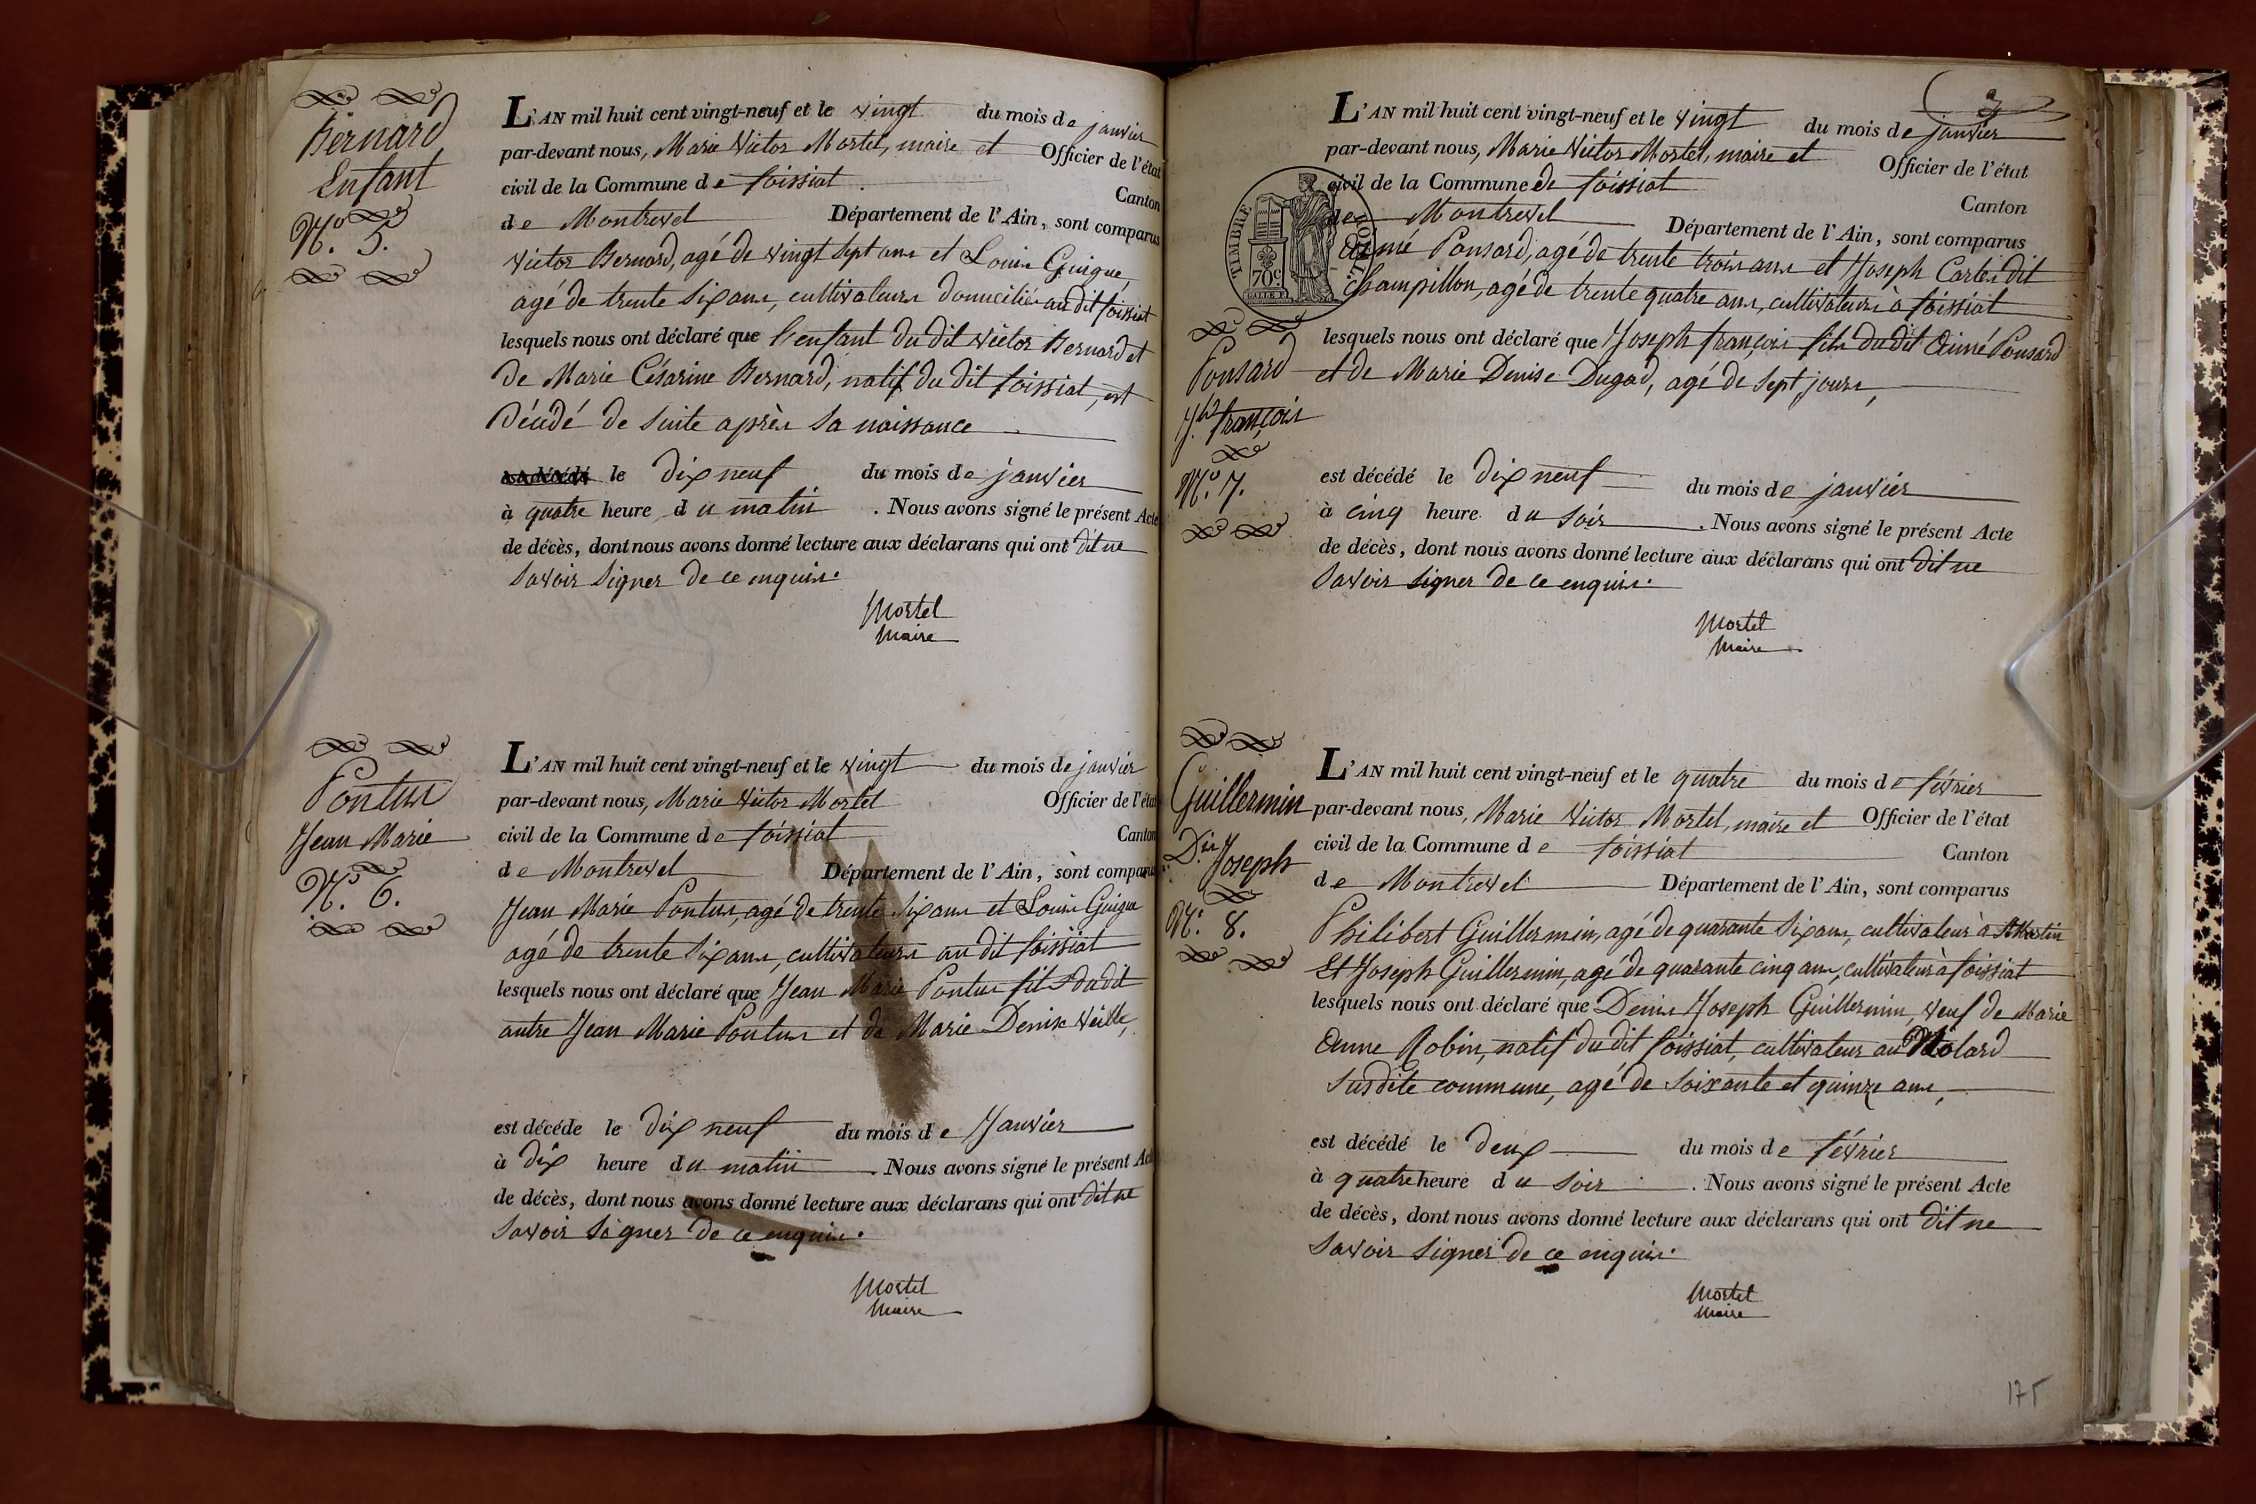 Bernard
Enfant
N.º 5.
L'AN mil huit cent vingt-neuf et le vingt du mois de janvier
par-devant nous, Marie Victor Mortel, maire et Officier de l'état
civil de la Commune de foissiat Canton
de Montrevel Département de l'Ain, sont comparus
Victor Bernard, agé de vingt sept ans et Louis Guigue
agé de trente six ans, cultivateurs domiciliés au dit foissiat
lesquels nous ont déclaré que l'enfant du dit Victor Bernard et
de Marie Césarine Bernard, natif du dit foissiat, est
Décédé de suite après sa naissance
est décédé le dix neuf du mois de janvier
à quatre heure du matin . Nous avons signé le présent Acte
de décès, dont nous avons donné lecture aux déclarans qui ont dit ne
savoir signer de ce enquis.
Mortel
Maire
Pontus
Jean Marie
N.º 6.
L'AN mil huit cent vingt-neuf et le vingt du mois de janvier
par-devant nous, Marie Victor Mortel Officier de l'état
civil de la Commune de foissiat Canton
de Montrevel Département de l'Ain, sont comparus
Jean Marie Pontus, agé de trente six ans et Louis Guigue
agé de trente six ans, cultivateurs au dit foissiat
lesquels nous ont déclaré que Jean Marie Pontus fils du dit
autre Jean Marie Pontus et de Marie Denise Veille,
est décéde le dix neuf du mois de Janvier
à dix heure du matin . Nous avons signé le présent Acte
de décès, dont nous avons donné lecture aux déclarans qui ont dit ne
savoir signer de ce enquis.
Mortel
Maire
3
TIMBRE ROYAL
70c
L'AN mil huit cent vingt-neuf et le vingt du mois de janvier
par-devant nous, Marie Victor Mortel, maire et Officier de l'état
civil de la Commune de foissiat Canton
de Montrevel Département de l'Ain, sont comparus
Aimé Ponsard, agé de trente trois ans et Joseph Carlet dit
Champillon, agé de trente quatre ans, cultivateurs à foissiat
lesquels nous ont déclaré que Joseph françois fils du dit Aimé Ponsard
et de Marie Denise Dugad, agé de sept jours,
Ponsard
J.ph françois
N.º 7.
est décédé le dix neuf du mois de janvier
à cinq heure du soir . Nous avons signé le présent Acte
de décès, dont nous avons donné lecture aux déclarans qui ont dit ne
savoir signer de ce enquis.
Mortel
Maire
Guillermin
D.is Joseph
N.º 8.
L'AN mil huit cent vingt-neuf et le quatre du mois de février
par-devant nous, Marie Victor Mortel, maire et Officier de l'état
civil de la Commune de foissiat Canton
de Montrevel Département de l'Ain, sont comparus
Philibert Guillermin, agé de quarante six ans, cultivateur à St Martin
Et Joseph Guillermin, agé de quarante cinq ans, cultivateur à foissiat
lesquels nous ont déclaré que Denis Joseph Guillermin, veuf de Marie
Anne Robin, natif du dit foissiat, cultivateur au Molard
susdite commune, agé de soixante et quinze ans,
est décédé le deux du mois de février
à quatre heure du soir . Nous avons signé le présent Acte
de décès, dont nous avons donné lecture aux déclarans qui ont dit ne
savoir signer de ce enquis.
Mortel
Maire
175